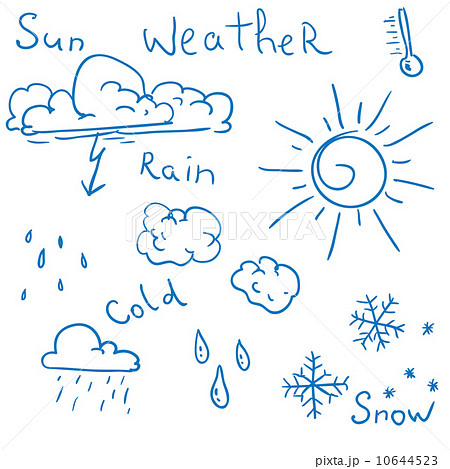 Sun WeatheR
Rain
Cold
Snow
PIXTA
pixta.jp - 10644523